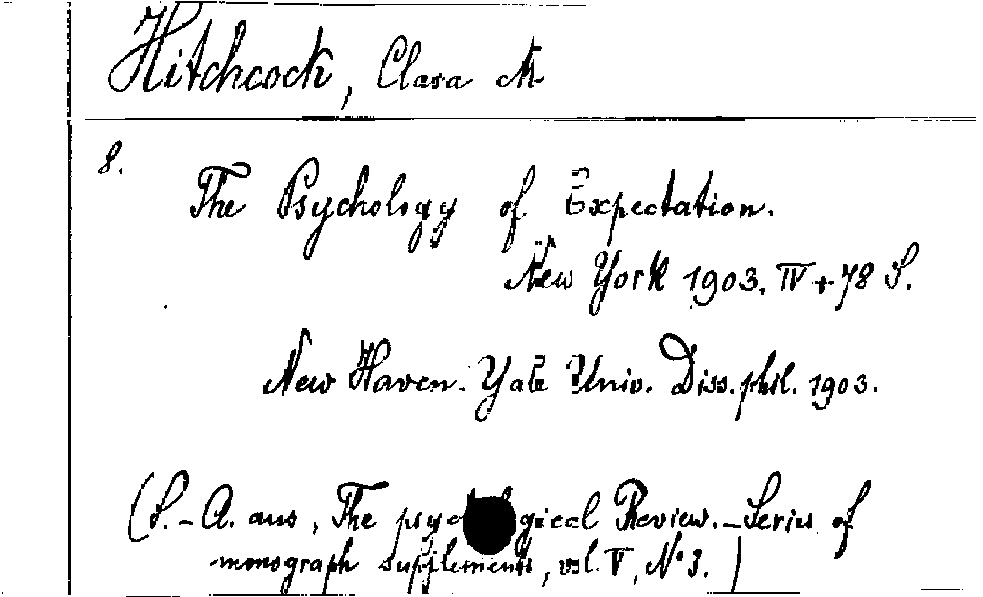 Hitchcock, Clara M
8.
The Psychology of Expectation.
New York 1903. IV + 78 S.
New Haven. Yale Univ. Diss. phil. 1903.
(S.-A. aus, The psychological Review. - Series of
monograph supplements, vol. V, N° 3.)